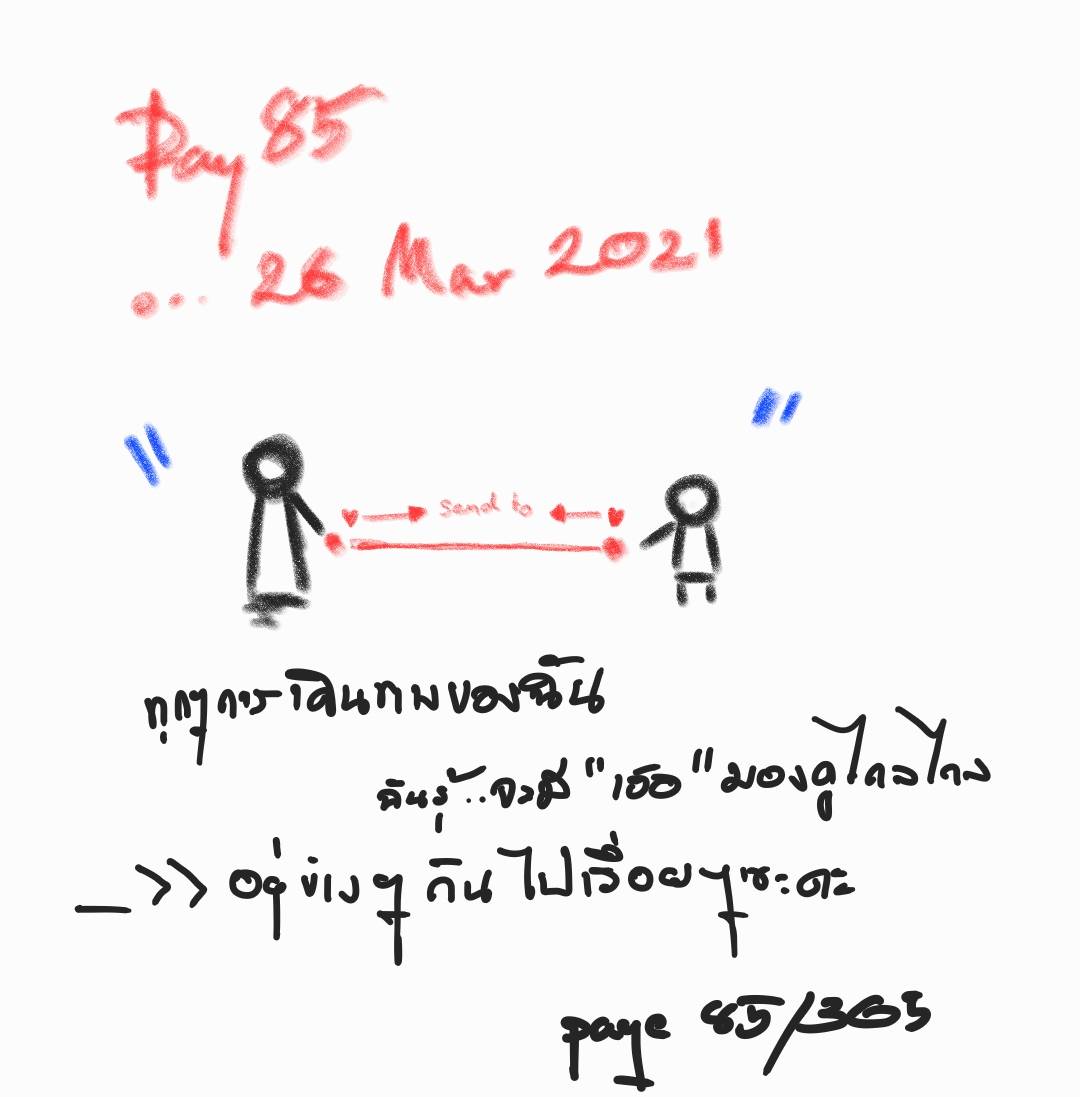 Day 85
... 26 Mar 2021
"
"
send to
ทุกๆการเดินทางของฉัน
ฉันรู้..จะมี "เธอ" มองดูไกลไกล
_>> อยู่ข้างๆ กันไปเรื่อยๆนะคะ
page 85/365